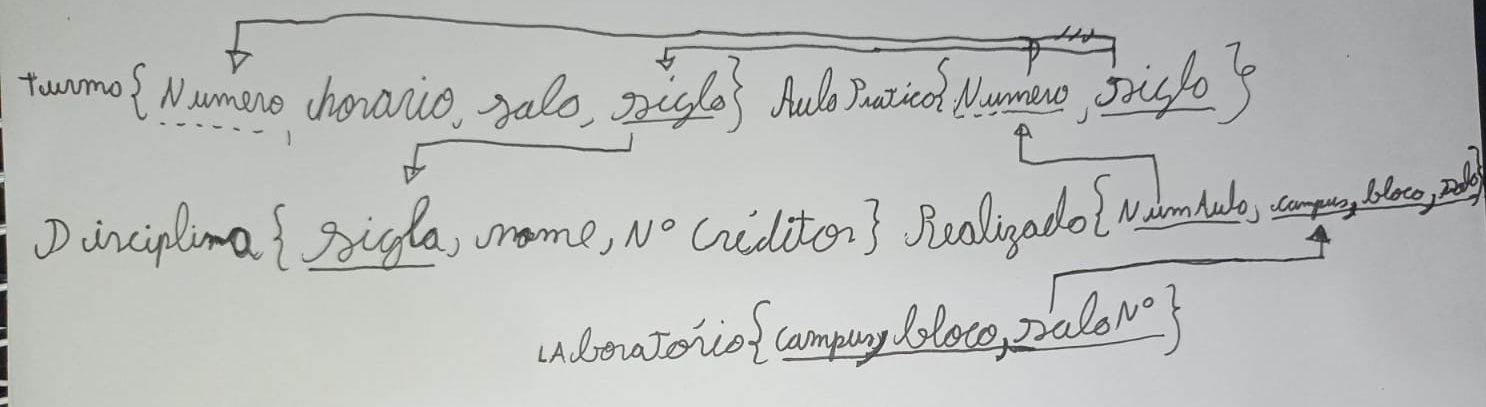 Turma{Numero, horario, sala, sigla} Aula Pratica{Numero, sigla}
Disciplina{sigla, nome, Nº Créditos} Realizado{NumAula, campus, bloco, sala}
LAboratório{campus, bloco, sala Nº}